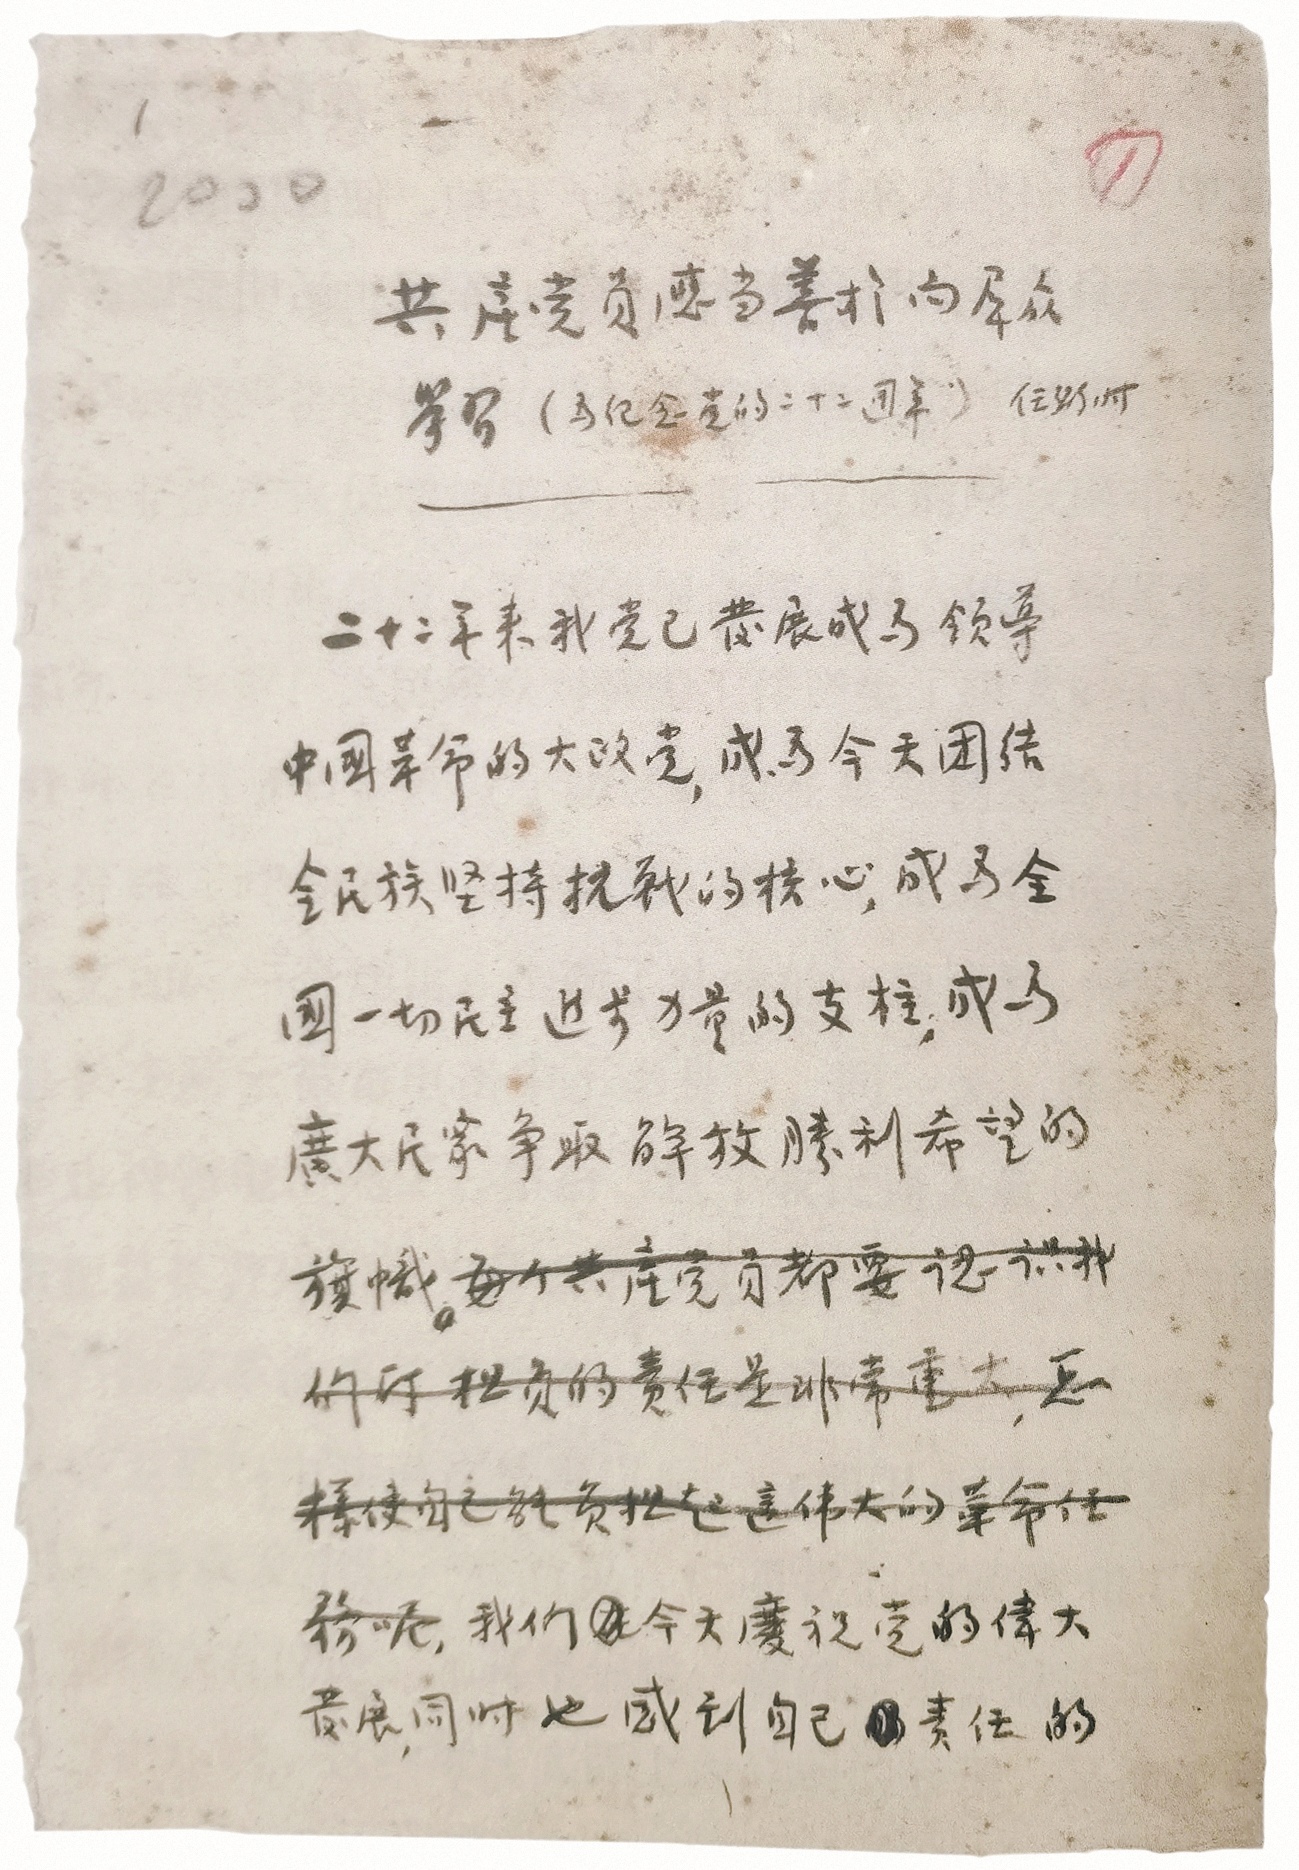 1
2000
1
共產党员應当善於向群众
學習（为纪念党的二十二周年）任弼时
二十二年来我党已發展成为领导
中國革命的大政党,成为今天团结
全民族坚持抗战的核心,成为全
國一切民主进步力量的支柱,成为
廣大民家争取解放勝利希望的
旗幟。每个共產党员都要认识我
们所担负的责任是非常重大,怎
樣使自己能负担起這伟大的革命任
務呢,我们在今天慶祝党的偉大
發展,同时也感到自己责任的